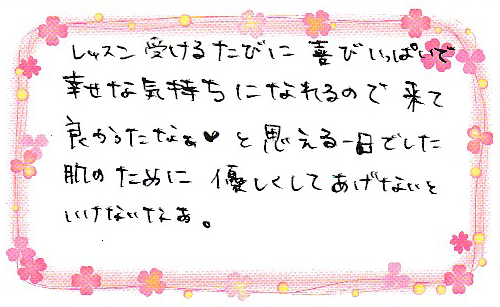 レッスン受けるたびに 喜びいっぱいで
幸せな気持ちになれるので 来て
良かったなぁ♥と思える一日でした
肌のために 優しくしてあげないと
いけないなぁ。